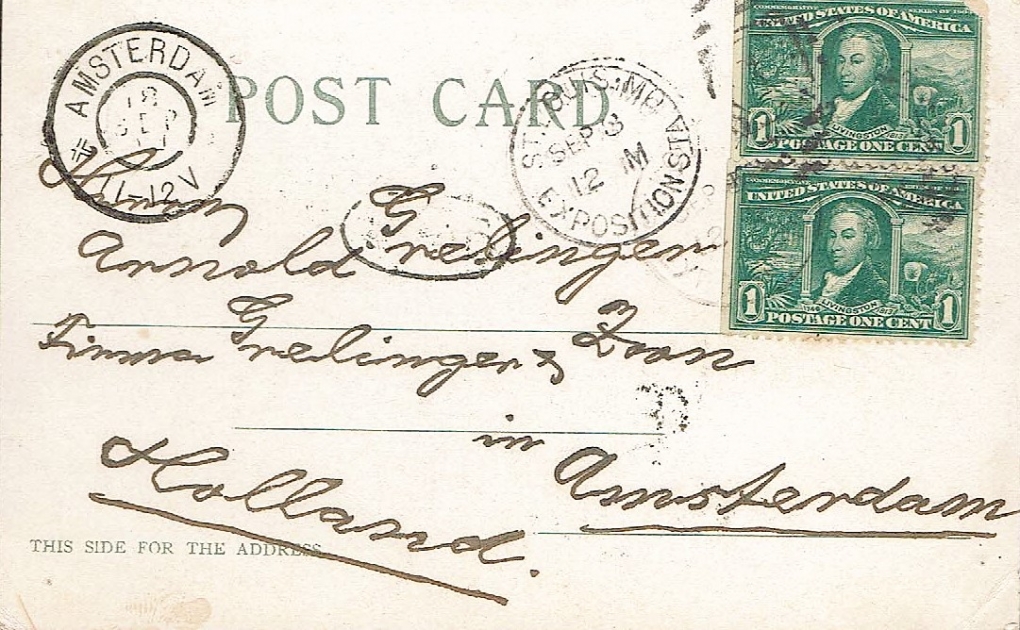 POST CARD
AMSTERDAM
18
SEP
11-12 V
ST. LOUIS, MO.
SEP 8
12 M
EXPOSITION STA
COMMEMORATIVE SERIES OF 1904
UNITED STATES OF AMERICA
LIVINGSTON
1 1
POSTAGE ONE CENT
UNITED STATES OF AMERICA
LIVINGSTON
1 1
POSTAGE ONE CENT
Herrn
Arnold Grelinger
Firma Grelinger & Zoon
in Amsterdam
Holland.
THIS SIDE FOR THE ADDRESS